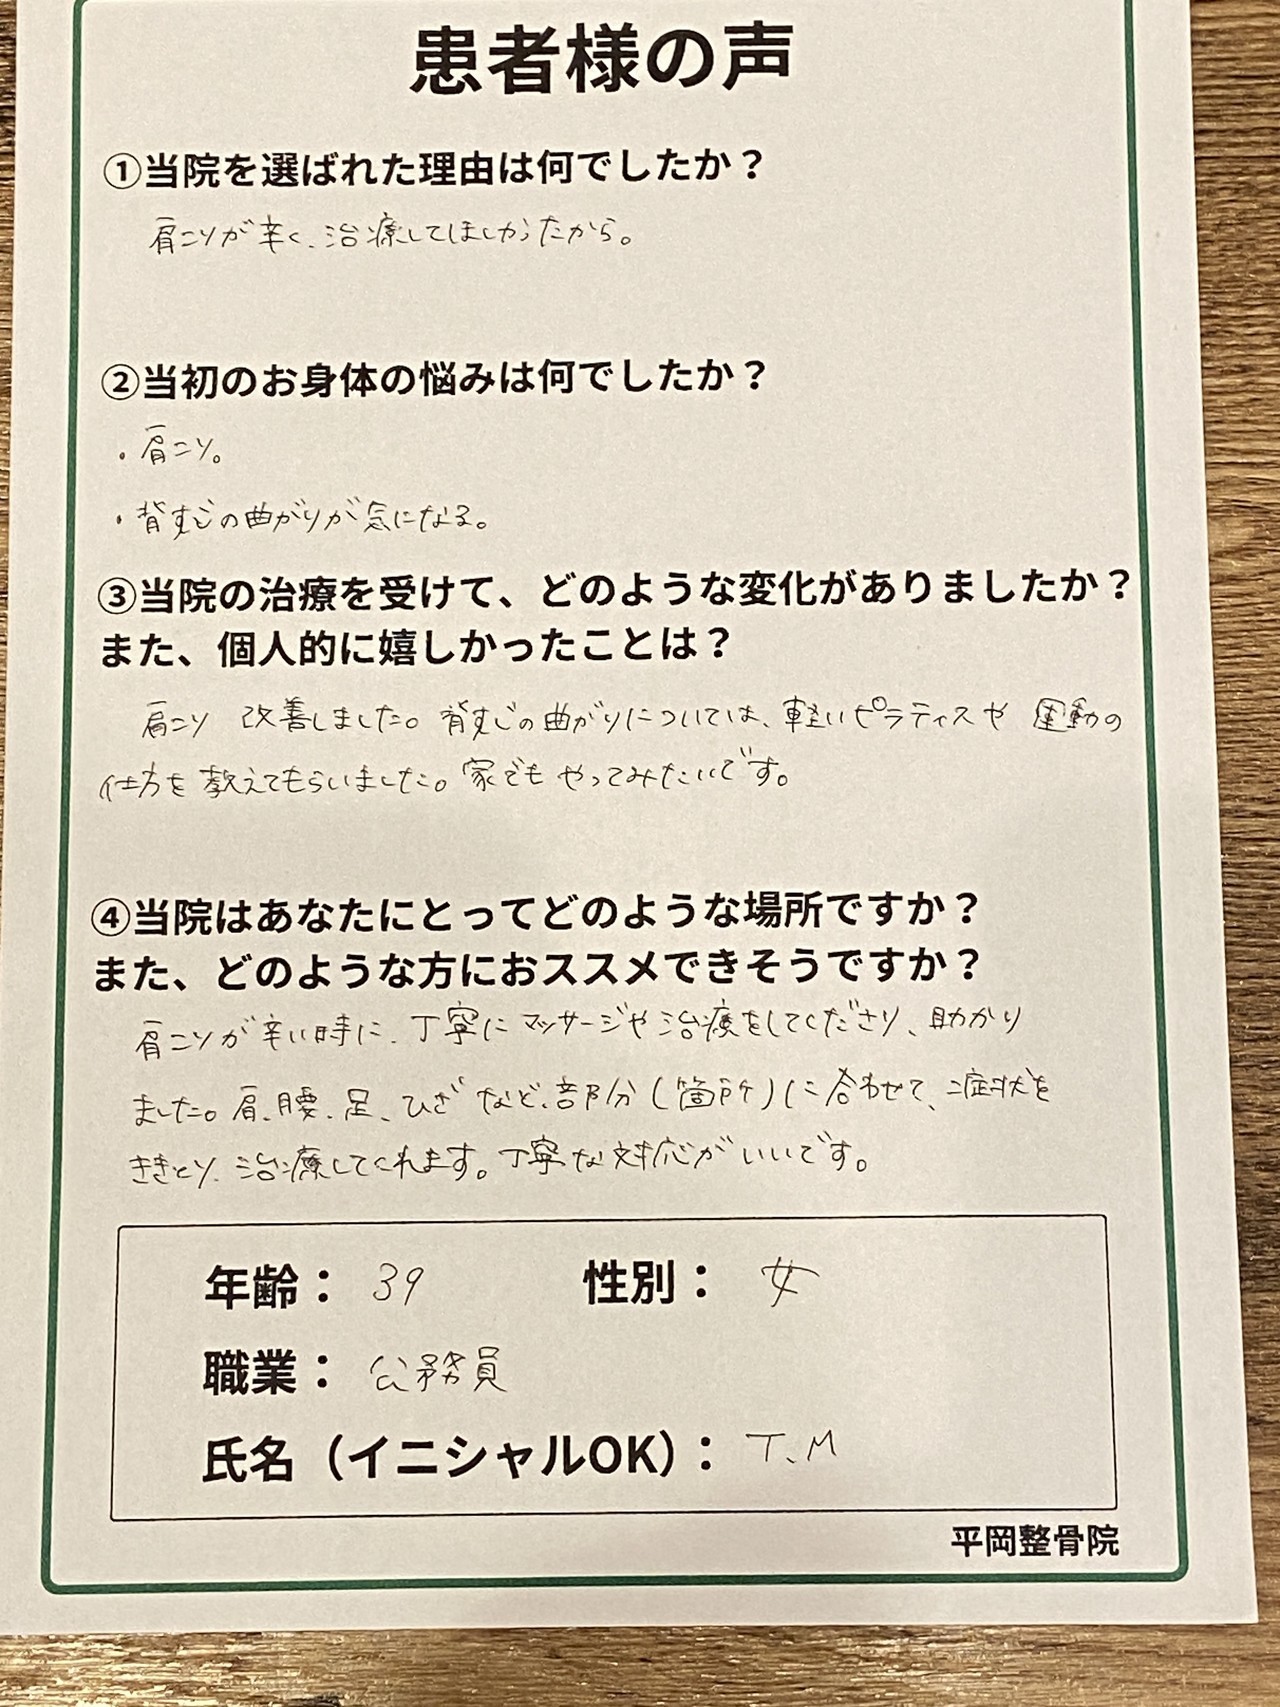 患者様の声
①当院を選ばれた理由は何でしたか？
肩こりが辛く、治療してほしかったから。
②当初のお身体の悩みは何でしたか？
・肩こり。
・背すじの曲がりが気になる。
③当院の治療を受けて、どのような変化がありましたか？
また、個人的に嬉しかったことは？
肩こり 改善しました。背すじの曲がりについては、軽いピラティスや 運動の
仕方を教えてもらいました。家でも やってみたいです。
④当院はあなたにとってどのような場所ですか？
また、どのような方におススメできそうですか？
肩こりが辛い時に、丁寧にマッサージや治療をしてくださり、助かり
ました。肩、腰、足、ひざ など、部分(箇所)に合わせて、症状を
ききとり、治療してくれます。丁寧な対応がいいです。
年齢： 39 性別： 女
職業： 公務員
氏名（イニシャルOK）： T.M
平岡整骨院